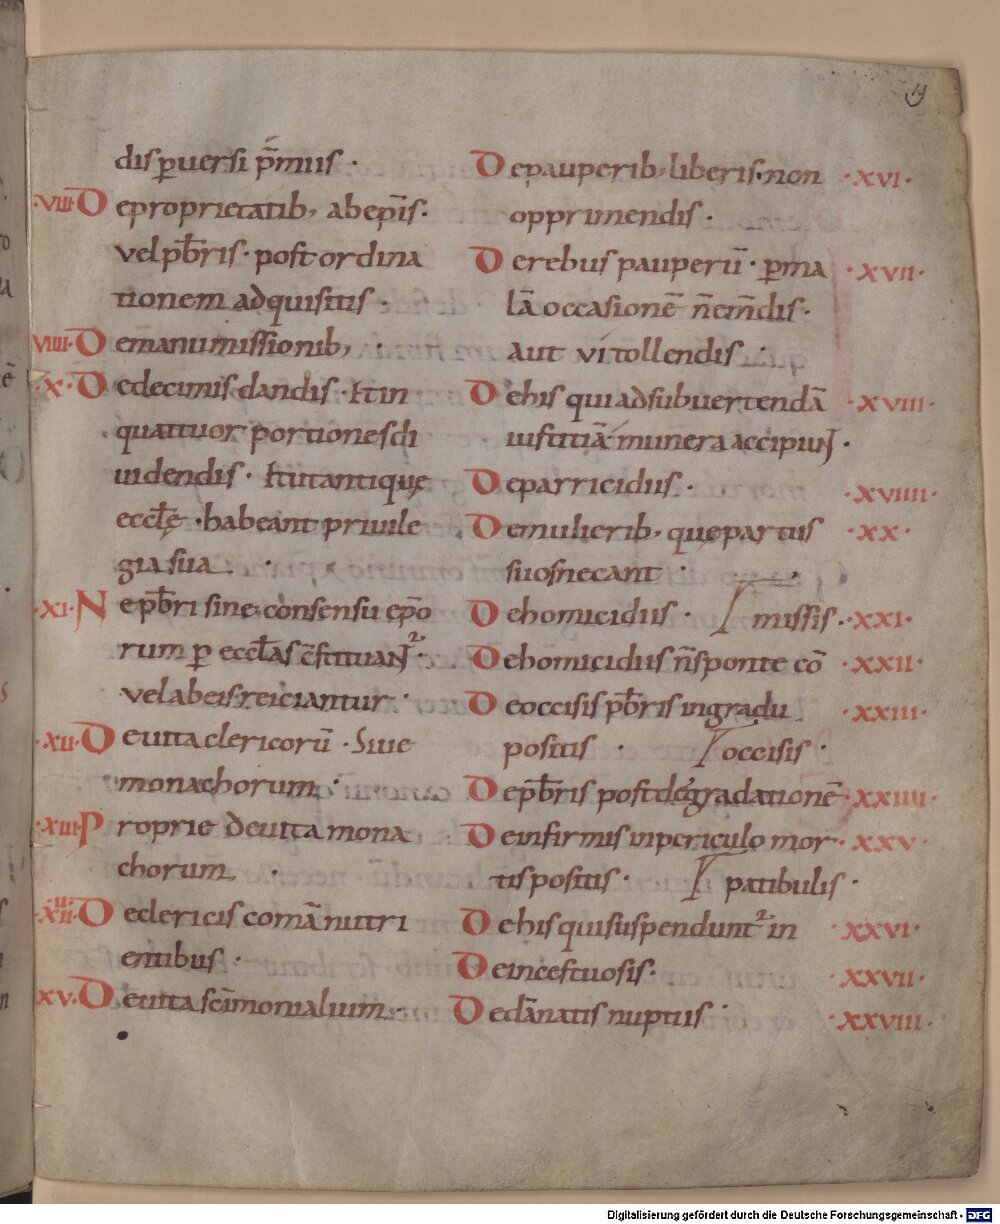 19
dis ꝑuersi p̄miis ·
·VIII· De proprietatib; ab ep̄is·
vel pb̄ris · post ordina
tionem adquisitis ·
VIIII· De manumissionib; ·
·X· De decimis dandis · Et in
quattuor portiones di
uidendis · Et ut antiquę
eccłę · habeant priuile
gia sua ·
·XI· Ne pb̄ri sine consensu ep̄o
rum ꝑ eccłas c̄stituant᷑ ·
vel ab eis reiciantur ·
·XII· De uita clericorū · Siue
monachorum ·
·XIII· Proprie de uita mona
chorum ·
·XIIII· De clericis comā nutri
entibus ·
XV· De uita sc̄imonialium
De pauperib; liberis · non ·XVI·
opprimendis ·
De rebus pauperū · ꝑ ma ·XVII·
lā occasionē n̄ em̄dis ·
aut vi tollendis ·
De his qui ad subuertendā ·XVIII·
iustitiā munera accipiunt ·
De parricidiis · ·XVIIII·
De mulierib; quę partus ·XX·
suos necant ·
De homicidiis · missis · ·XXI·
De homicidiis n̄ sponte cō ·XXII·
De occisis pb̄ris in gradu ·XXIII·
positis · occisis ·
De pb̄ris post degradationē ·XXIIII·
De infirmis in periculo mor ·XXV·
tis positis · patibulis ·
De his qui suspendunt᷑ in ·XXVI·
De incestuosis · ·XXVII·
De dānatis nuptiis · ·XXVIII·
Digitalisierung gefördert durch die Deutsche Forschungsgemeinschaft - DFG